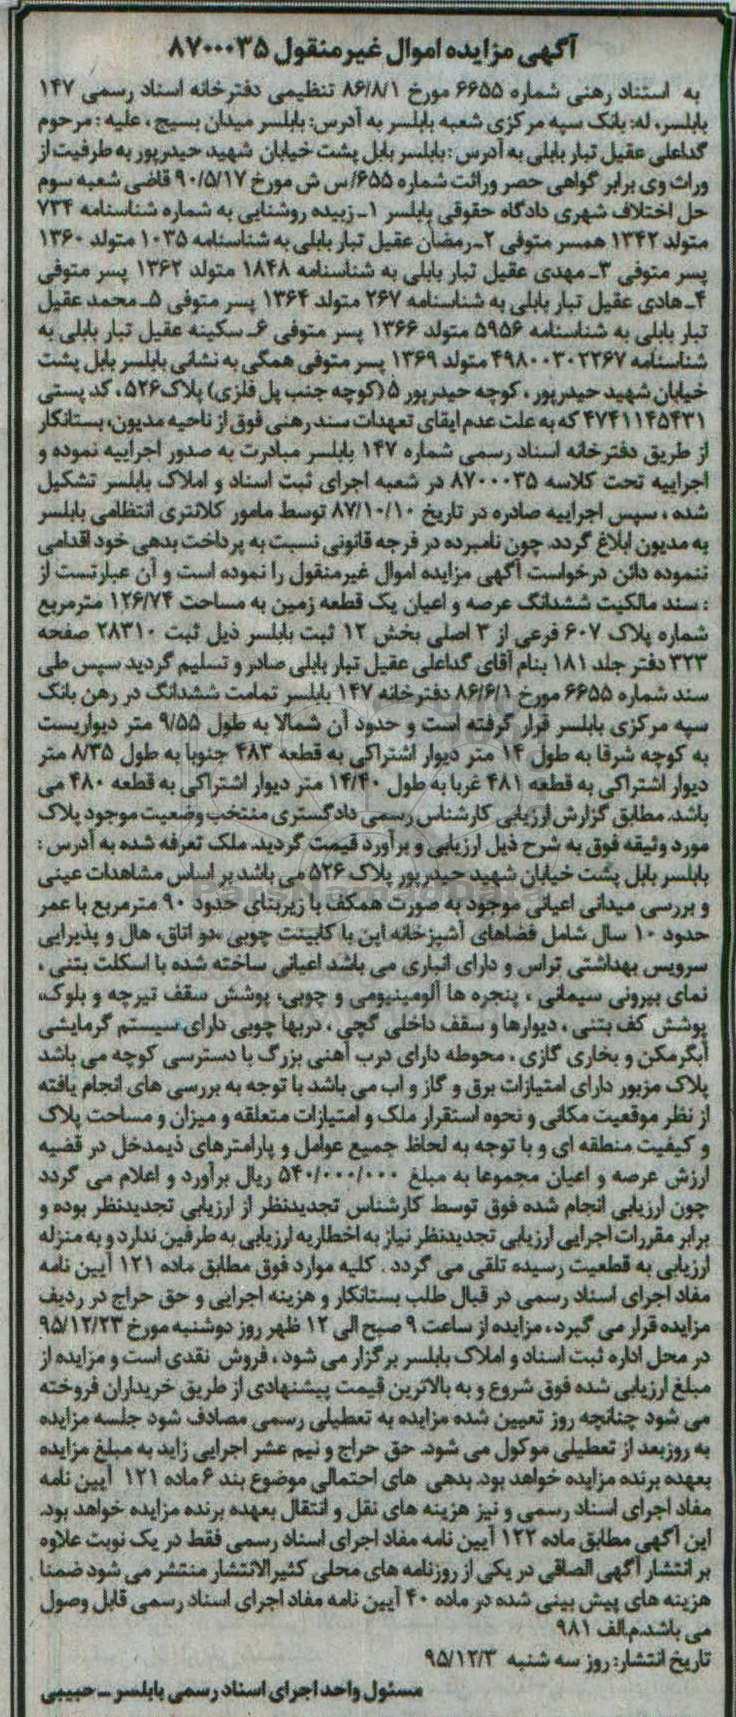 آگهی مزایده اموال غیرمنقول ۸۷۰۰۰۳۵
به استناد رهنی شماره ۶۶۵۵ مورخ ۸۶/۸/۱ تنظیمی دفترخانه اسناد رسمی ۱۴۷
بابلسر، له: بانک سپه مرکزی شعبه بابلسر به آدرس: بابلسر میدان بسیج ، علیه : مرحوم
گداعلی عقیل تبار بابلی به آدرس : بابلسر بابل پشت خیابان شهید حیدرپور به طرفیت از
وراث وی برابر گواهی حصر وراثت شماره ۶۵۵/س ش مورخ ۹۰/۵/۱۷ قاضی شعبه سوم
حل اختلاف شهری دادگاه حقوقی بابلسر ۱ـ زبیده روشنایی به شماره شناسنامه ۷۳۴
متولد ۱۳۴۲ همسر متوفی ۲ـ رمضان عقیل تبار بابلی به شناسنامه ۱۰۳۵ متولد ۱۳۶۰
پسر متوفی ۳ـ مهدی عقیل تبار بابلی به شناسنامه ۱۸۴۸ متولد ۱۳۶۲ پسر متوفی
۴ـ هادی عقیل تبار بابلی به شناسنامه ۲۶۷ متولد ۱۳۶۴ پسر متوفی ۵ـ محمد عقیل
تبار بابلی به شناسنامه ۵۹۵۶ متولد ۱۳۶۶ پسر متوفی ۶ـ سکینه عقیل تبار بابلی به
شناسنامه ۴۹۸۰۰۳۰۲۲۶۷ متولد ۱۳۶۹ پسر متوفی همگی به نشانی بابلسر بابل پشت
خیابان شهید حیدرپور ، کوچه حیدرپور ۵ (کوچه جنب پل فلزی) پلاک ۵۲۶ ، کد پستی
۴۷۴۱۱۴۵۴۳۱ که به علت عدم ایفای تعهدات سند رهنی فوق از ناحیه مدیون، بستانکار
از طریق دفترخانه اسناد رسمی شماره ۱۴۷ بابلسر مبادرت به صدور اجراییه نموده و
اجراییه تحت کلاسه ۸۷۰۰۰۳۵ در شعبه اجرای ثبت اسناد و املاک بابلسر تشکیل
شده ، سپس اجراییه صادره در تاریخ ۸۷/۱۰/۱۰ توسط مامور کلانتری انتظامی بابلسر
به مدیون ابلاغ گردد. چون نامبرده در فرجه قانونی نسبت به پرداخت بدهی خود اقدامی
ننموده دائن درخواست آگهی مزایده اموال غیرمنقول را نموده است و آن عبارتست از
: سند مالکیت ششدانگ عرصه و اعیان یک قطعه زمین به مساحت ۱۲۶/۷۴ مترمربع
شماره پلاک ۶۰۷ فرعی از ۳ اصلی بخش ۱۲ ثبت بابلسر ذیل ثبت ۲۸۳۱۰ صفحه
۳۲۳ دفتر جلد ۱۸۱ بنام آقای گداعلی عقیل تبار بابلی صادر و تسلیم گردید سپس طی
سند شماره ۶۶۵۵ مورخ ۸۶/۶/۱ دفترخانه ۱۴۷ بابلسر تمامت ششدانگ در رهن بانک
سپه مرکزی بابلسر قرار گرفته است و حدود آن شمالا به طول ۹/۵۵ متر دیواریست
به کوچه شرقا به طول ۱۴ متر دیوار اشتراکی به قطعه ۴۸۳ جنوبا به طول ۸/۳۵ متر
دیوار اشتراکی به قطعه ۴۸۱ غربا به طول ۱۴/۴۰ متر دیوار اشتراکی به قطعه ۴۸۰ می
باشد. مطابق گزارش ارزیابی کارشناس رسمی دادگستری منتخب وضعیت موجود پلاک
مورد وثیقه فوق به شرح ذیل ارزیابی و برآورد قیمت گردید. ملک تعرفه شده به آدرس :
بابلسر بابل پشت خیابان شهید حیدرپور پلاک ۵۲۶ می باشد بر اساس مشاهدات عینی
و بررسی میدانی اعیانی موجود به صورت همکف با زیربنای حدود ۹۰ مترمربع با عمر
حدود ۱۰ سال شامل فضاهای آشپزخانه اپن با کابینت چوبی ،دو اتاق، هال و پذیرایی
سرویس بهداشتی تراس و دارای انباری می باشد اعیانی ساخته شده با اسکلت بتنی ،
نمای بیرونی سیمانی ، پنجره ها آلومینیومی و چوبی، پوشش سقف تیرچه و بلوک،
پوشش کف بتنی ، دیوارها و سقف داخلی گچی ، دربها چوبی دارای سیستم گرمایشی
آبگرمکن و بخاری گازی ، محوطه دارای درب آهنی بزرگ با دسترسی کوچه می باشد
پلاک مزبور دارای امتیازات برق و گاز و اب می باشد با توجه به بررسی های انجام یافته
از نظر موقعیت مکانی و نحوه استقرار ملک و امتیازات متعلقه و میزان و مساحت پلاک
و کیفیت منطقه ای و با توجه به لحاظ جمیع عوامل و پارامترهای ذیمدخل در قضیه
ارزش عرصه و اعیان مجموعا به مبلغ ۵۴۰/۰۰۰/۰۰۰ ریال برآورد و اعلام می گردد
چون ارزیابی انجام شده فوق توسط کارشناس تجدیدنظر از ارزیابی تجدیدنظر بوده و
برابر مقررات اجرایی ارزیابی تجدیدنظر نیاز به اخطاریه ارزیابی به طرفین ندارد و به منزله
ارزیابی به قطعیت رسیده تلقی می گردد . کلیه موارد فوق مطابق ماده ۱۲۱ آیین نامه
مفاد اجرای اسناد رسمی در قبال طلب بستانکار و هزینه اجرایی و حق حراج در ردیف
مزایده قرار می گیرد ، مزایده از ساعت ۹ صبح الی ۱۲ ظهر روز دوشنبه مورخ ۹۵/۱۲/۲۳
در محل اداره ثبت اسناد و املاک بابلسر برگزار می شود ، فروش نقدی است و مزایده از
مبلغ ارزیابی شده فوق شروع و به بالاترین قیمت پیشنهادی از طریق خریداران فروخته
می شود چنانچه روز تعیین شده مزایده به تعطیلی رسمی مصادف شود جلسه مزایده
به روزبعد از تعطیلی موکول می شود. حق حراج و نیم عشر اجرایی زاید به مبلغ مزایده
بعهده برنده مزایده خواهد بود. بدهی های احتمالی موضوع بند ۶ ماده ۱۲۱ آیین نامه
مفاد اجرای اسناد رسمی و نیز هزینه های نقل و انتقال بعهده برنده مزایده خواهد بود.
این آگهی مطابق ماده ۱۲۲ آیین نامه مفاد اجرای اسناد رسمی فقط در یک نوبت علاوه
بر انتشار آگهی الصاقی در یکی از روزنامه های محلی کثیرالانتشار منتشر می شود ضمنا
هزینه های پیش بینی شده در ماده ۴۰ آیین نامه مفاد اجرای اسناد رسمی قابل وصول
می باشد.م.الف ۹۸۱
تاریخ انتشار: روز سه شنبه ۹۵/۱۲/۳
مسئول واحد اجرای اسناد رسمی بابلسر ــ حبیبی
ParsNamadData